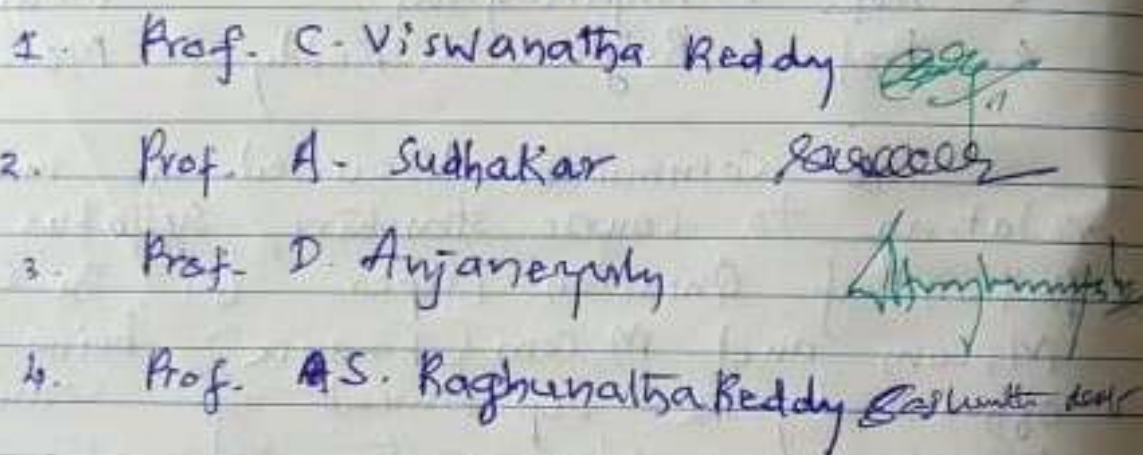 1. Prof. C. Viswanatha Reddy
2. Prof. A. Sudhakar
3. Prof. D. Anjaneyulu
4. Prof. S. Raghunatha Reddy